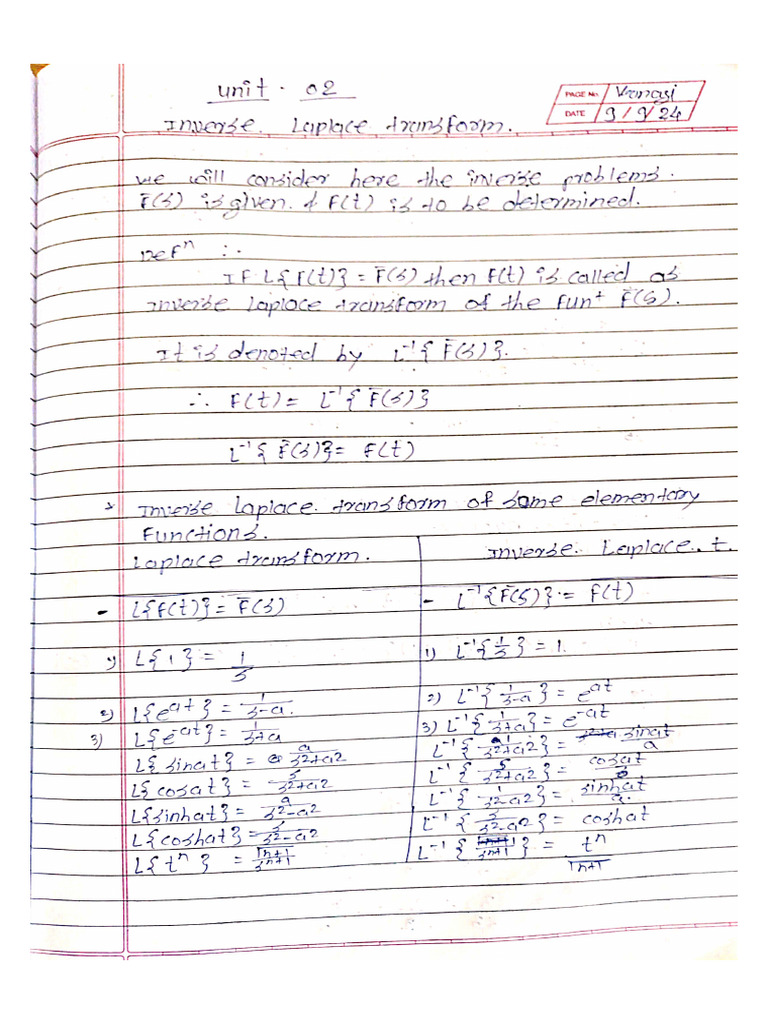 Unit - 02
PAGE No. Vranagi
DATE 9/9/24
Inverse Laplace transform.
We will consider here the inverse problems.
F̄(s) is given & F(t) is to be determined.
Defⁿ :.
If L{F(t)} = F̄(s) then F(t) is called as
inverse laplace transform of the funt F̄(s).
It is denoted by L⁻¹{F̄(s)}.
∴ F(t) = L⁻¹{F̄(s)}
L⁻¹{F̄(s)} = F(t)
* Inverse Laplace transform of some elementary
Functions.
Laplace transform. Inverse Laplace. t.
- L{F(t)} = F̄(s) - L⁻¹{F̄(s)} = F(t)
1) L{1} = 1/s 1) L⁻¹{1/s} = 1.
2) L{e^at} = 1/s-a. 2) L⁻¹{1/s-a} = e^at
3) L{e^-at} = 1/s+a 3) L⁻¹{1/s+a} = e^-at
L{sinat} = a/s²+a² L⁻¹{1/s²+a²} = sinat/a
L{cosat} = s/s²+a² L⁻¹{s/s²+a²} = cosat
L{sinhat} = a/s²-a² L⁻¹{1/s²-a²} = sinhat/a.
L{coshat} = s/s²-a² L⁻¹{s/s²-a²} = coshat
L{tⁿ} = Γn+1/sⁿ⁺¹ L⁻¹{1/sⁿ⁺¹} = tⁿ/Γn+1